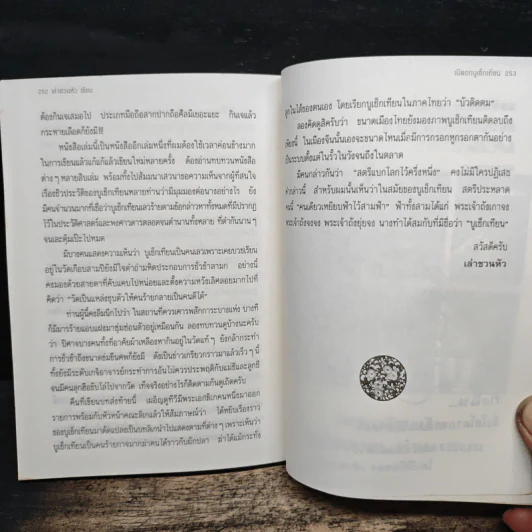 252 เล่าชวนหัว เขียน
ต้องกินเจเสมอไป ประเภทมือถือสากปากถือศีลมีเยอะแยะ กินเจแล้ว
กระหายเลือดก็ยังมี!!
หนังสือเล่มนี้เป็นหนังสืออีกเล่มหนึ่งที่ผมต้องใช้เวลาค่อนข้างมาก
ในการเขียนแล้วแก้แก้แล้วเขียนใหม่หลายครั้ง ต้องอ่านทบทวนหนังสือ
ต่างๆ หลายสิบเล่ม พร้อมทั้งไปสัมมนาเสวนาขอความเห็นจากผู้ที่สนใจ
เรื่องชีวประวัติของบูเช็กเทียนหลายท่านว่ามีมุมมองต่อนางอย่างไร ยัง
มีคนจำนวนมากที่เชื่อว่าบูเช็กเทียนเลวร้ายตามข้อกล่าวหาทั้งหมดที่มีปรากฏ
ไว้ในประวัติศาสตร์และพงศาวดารตลอดจนตำนานทั้งหลาย ที่ตำกันนานๆ
จนเละตุ้มเป๊ะไปหมด
มีบางคนแสดงความเห็นว่า บูเช็กเทียนเป็นคนเลวเพราะเคยบวชเรียน
อยู่ในวัดเกือบสามปียังมีใจดำอำมหิตประกอบการชั่วช้าลามก อย่างนี้
คงมองด้วยสายตาที่คับแคบไปหน่อยและตั้งความหวังเลิศลอยมากไปที่
คิดว่า "วัดเป็นแหล่งชุบตัวให้คนร้ายกลายเป็นคนดีได้"
ท่านผู้นี้คงลืมนึกไปว่า ในสถานที่ควรเคารพสักการะบางแห่ง บางที
ก็มีมารร้ายแอบแฝงมาซุ่มซ่อนตัวอยู่เหมือนกัน ลองทบทวนดูบ้างนะครับ
ว่า ปีศาจบางคนทั้งที่อาศัยผ้าเหลืองหากินอยู่ในวัดแท้ๆ ยังกล้ากระทำ
การชั่วช้าถึงขนาดข่มขืนศพก็ยังมี ดังเป็นข่าวเกรียวกราวมาแล้วเร็วๆ นี้
ทั้งยังมีระดับเกจิอาจารย์กระทำการอันไม่ควรประพฤติกับแม่ชีและลูกชี
จนมีคนลุกฮือขับไล่ไปจากวัด เท็จจริงอย่างไรก็ติดตามกันดูเถิดครับ
คืนที่เขียนบทส่งท้ายนี้ เผอิญดูทีวีมีพระเอกลิเกคนหนึ่งมาออก
รายการพร้อมกับหัวหน้าคณะลิเกแล้วให้สัมภาษณ์ว่า ได้หยิบเรื่องราว
ของบูเช็กเทียนมาดัดแปลงเป็นบทลิเกนำไปแสดงตามที่ต่างๆ เพราะเห็นว่า
บูเช็กเทียนเป็นคนร้ายกาจมากฆ่าคนได้ราวกับผักปลา ฆ่าได้แม้กระทั่ง
เปิดอกบูเช็กเทียน 253
ลูกในไส้ของตนเอง โดยเรียกบูเช็กเทียนในภาคไทยว่า "บัวติดตม"
ลองคิดดูสิครับว่า ขนาดเมืองไทยยังมองภาพบูเช็กเทียนติดลบถึง
เพียงนี้ ในเมืองจีนนั้นเองจะขนาดไหนเมื่อมีการกรอกหูกรอกตากันอย่าง
เป็นระบบตั้งแต่ในรั้วในวังจนถึงในตลาด
มีคนกล่าวกันว่า "สตรีแบกโลกไว้ครึ่งหนึ่ง" คงไม่มีใครปฏิเสธ
คำกล่าวนี้ สำหรับผมนั้นเห็นว่าในสมัยของบูเช็กเทียน สตรีประหลาด
คนนี้ "คนเดียวเหยียบฟ้าไว้สามฟ้า" ฟ้าทั้งสามได้แก่ พระเจ้าถังเกาจง
พระเจ้าถังจงจง พระเจ้าถังยุ่ยจง นางทำได้สมกับที่มีชื่อว่า "บูเช็กเทียน"
สวัสดีครับ
เล่าชวนหัว